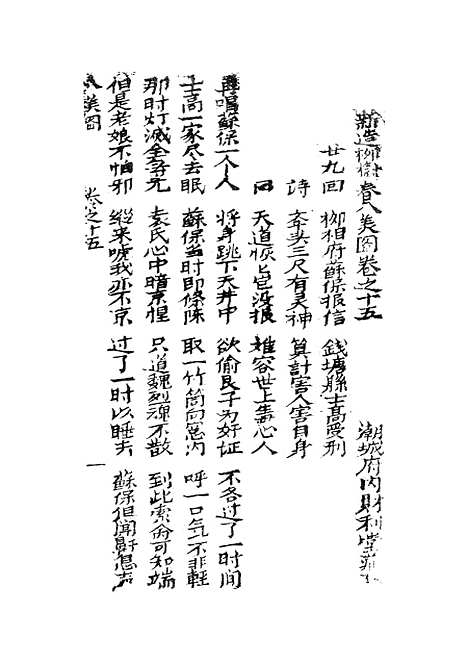 新造柳樹春八美圖卷之十五 潮城府內財利堂
廿九回 柳相府蘇保报信 錢塘縣士高受刑
詩 舉头三尺有灵神 算計害人害自身
曰 天道恢恢皆没报 难容世上毒心人
再唱蘇保一个人 將身跳下天井中 欲偷良子为好证 不各过了一时间
士高一家尽去眠 蘇保当时即條陈 取一竹筒向窓内 呼一口气不非轻
那时灯滅全无 袁氏心中暗京惶 只道魏烈魂不散 到此索命可知端
但是老娘不怕邪 総来唬我亦不京 过了一时以睡去 蘇保但闻鼾息声
八美圖 卷之十五 一